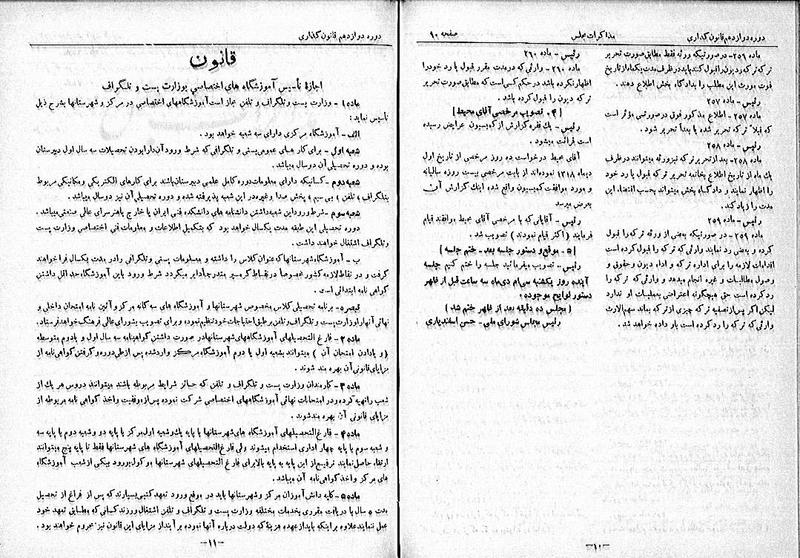 دوره دوازدهم قانون گذاری
مذاکرات مجلس
صفحه ۹۰
ماده ۲۵۶- در صورتیکه ورثه فقط مطابق صورت تحریر
ترکه ترکه و دیون را قبول کنند باید در ظرف مدت یکماه از تاریخ
فوت مورث این مطلب را بدادگاه بخش اطلاع دهند.
رئیس - ماده ۲۵۷
ماده ۲۵۷- اطلاع مذکور فوق در صورتی مؤثر است
که قبلا ترکه تحریر شده یا بعداً تحریر شود.
رئیس - ماده ۲۵۸
ماده ۲۵۸- بعد از تحریر ترکه نیز ورثه میتوانند در ظرف
یک ماه از تاریخ اطلاع بخاتمه تحریر ترکه قبول یا رد خود
را اظهار نمایند و دادگاه بخش میتواند بحسب اقتضاء این
مدت را زیاد کند.
رئیس - ماده ۲۵۹
ماده ۲۵۹- در صورتیکه بعضی از ورثه ترکه را قبول
کرده و بعضی رد نمایند وارثی که ترکه را قبول کرده است
اقدامات لازمه را برای اداره ترکه و اداء دیون و حقوق و
وصول مطالبات و غیره انجام میدهد و وارثی که ترکه را
رد کرده است حق هیچگونه اعتراضی بعملیات او ندارد
لیکن اگر پس از تصفیه ترکه چیزی از ترکه بماند سهم‌الارث
وارثی که ترکه را رد کرده است باو داده خواهد شد.
رئیس - ماده ۲۶۰
ماده ۲۶۰- وارثی که در مدت مقرر قبول یا رد خود را
اظهار نکرده باشد در حکم کسی است که مطابق صورت تحریر
ترکه دیون را قبول کرده باشد.
[۴- تصویب مرخصی آقای محیط]
رئیس - یک فقره گزارش از کمیسیون عرایض رسیده
است قرائت میشود.
آقای محیط درخواست ده روز مرخصی از تاریخ اول
دیماه ۱۳۱۸ نموده‌اند از بابت مرخصی بیست روزه سالیانه
و مورد موافقت کمیسیون واقع شده اینک گزارش آن
بعرض میرسد
رئیس - آقایانی که با مرخصی آقای محیط موافقند قیام
فرمایند (اکثر قیام نمودند) تصویب شد.
[۵- موقع و دستور جلسه بعد - ختم جلسه]
رئیس - تصویب میفرمائید جلسه را ختم کنیم جلسه
آینده روز یکشنبه سی‌ام دی‌ماه سه ساعت قبل از ظهر
دستور لوایح موجوده.
(مجلس ده دقیقه بعد از ظهر ختم شد)
رئیس مجلس شورای ملی - حسن اسفندیاری
-۱۰-
دوره دوازدهم قانون گذاری
قانون
اجازهٔ تأسیس آموزشگاه های اختصاصی بوزارت پست و تلگراف
ماده۱ - وزارت پست و تلگراف و تلفن مجاز است آموزشگاههای اختصاصی در مرکز و شهرستانها بشرح ذیل
تأسیس نماید:
الف - آموزشگاه مرکزی دارای سه شعبه خواهد بود.
شعبه اول - برای کار های عمومی پستی و تلگرافی که شرط ورود آن دارا بودن تحصیلات سه سال اول دبیرستان
بوده و دوره تحصیلی آن دو سال میباشد.
شعبه دوم - کسانیکه دارای معلومات دوره کامل علمی دبیرستان باشند برای کارهای الکتریکی و مکانیکی مربوط
بتلگراف، تلفن، بی سیم، پخش صدا و غیره در این شعبه پذیرفته شده و دوره تحصیلی آن نیز دو سال میباشد.
شعبه سوم - شرط ورود باین شعبه داشتن دانشنامه های دانشکده فنی ایران یا خارج یا هنرسرای عالی صنعتی میباشد.
دوره تحصیلی این طبقه مدت یکسال خواهد بود که بتکمیل اطلاعات و معلومات فنی اختصاصی وزارت پست
و تلگراف اشتغال خواهند داشت.
ب - آموزشگاه شهرستانها که عنوان کلاس را داشته و معلومات پستی و تلگرافی را در مدت یکسال فرا خواهند
گرفت و در نقاط لازمه کشور خصوصاً در نقاط گرمسیر بتدریج دایر میگردد شرط ورود باین آموزشگاه حداقل داشتن
گواهی نامه ابتدائی است.
تبصره - برنامه تحصیلی کلاس مخصوص شهرستانها و آموزشگاه های سه گانه مرکز و آئین نامه امتحان داخلی و
نهائی آنها را وزارت پست و تلگراف و تلفن بر طبق احتیاجات خود تنظیم نموده و برای تصویب بشورای عالی فرهنگ خواهد فرستاد.
ماده۲ - فارغ التحصیلهای آموزشگاه های شهرستانها در صورت داشتن گواهینامه سه سال اول و یا دوم متوسطه
(و یا دادن امتحان آن) میتوانند بشعبه اول یا دوم آموزشگاه مرکز وارد شده پس از طی دوره و گرفتن گواهی نامه از
مزایای قانونی آن بهره مند شوند.
ماده۳ - کارمندان وزارت پست و تلگراف و تلفن که حائز شرایط مربوطه باشند میتوانند دروس هر یک از
شعب را تهیه کرده و در امتحانات نهائی آموزشگاه‌های اختصاصی شرکت نموده پس از موفقیت و اخذ گواهی نامه مربوطه از
مزایای قانونی آن بهره مند شوند.
ماده۴ - فارغ التحصیلهای آموزشگاه های شهرستانها با پایه یک و شعبه اول مرکز با پایه دو و شعبه دوم با پایه سه
و شعبه سوم با پایه چهار اداری استخدام میشوند ولی فارغ التحصیلهای آموزشگاه های شهرستانها فقط تا پایه پنج میتوانند
ارتقاء حاصل نمایند ترفیع از این پایه به پایه بالا برای فارغ التحصیلهای شهرستانها موکول بورود بیکی از شعب آموزشگاه
های مرکز و اخذ گواهی نامه آن میباشد.
ماده۵ - کلیه دانش‌آموزان مرکز و شهرستانها باید در موقع ورود تعهد کتبی بسپارند که پس از فراغ از تحصیل
مدت ۵ سال با دریافت مقرری بخدمات مختلفه وزارت پست و تلگراف و تلفن اشتغال ورزند کسانی که مطابق تعهد خود
عمل ننمایند علاوه بر اینکه باید از عهده هزینه که دولت درباره آنها نموده برآیند از مزایای این قانون نیز محروم خواهند بود.
-۱۱-